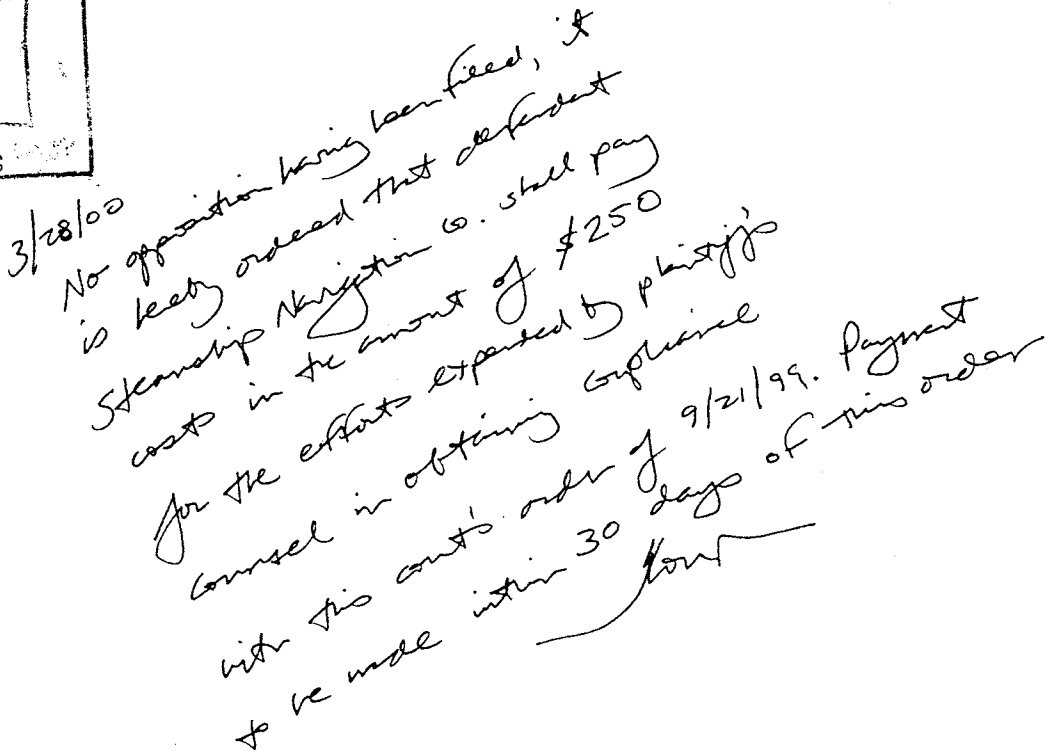 3/28/00
No opposition having been filed, it
is hereby ordered that defendant
Steamship Navigation Co. shall pay
costs in the amount of $250
for the efforts expended by plaintiff's
counsel in obtaining compliance
with this court's order of 9/21/99. Payment
to be made within 30 days of this order